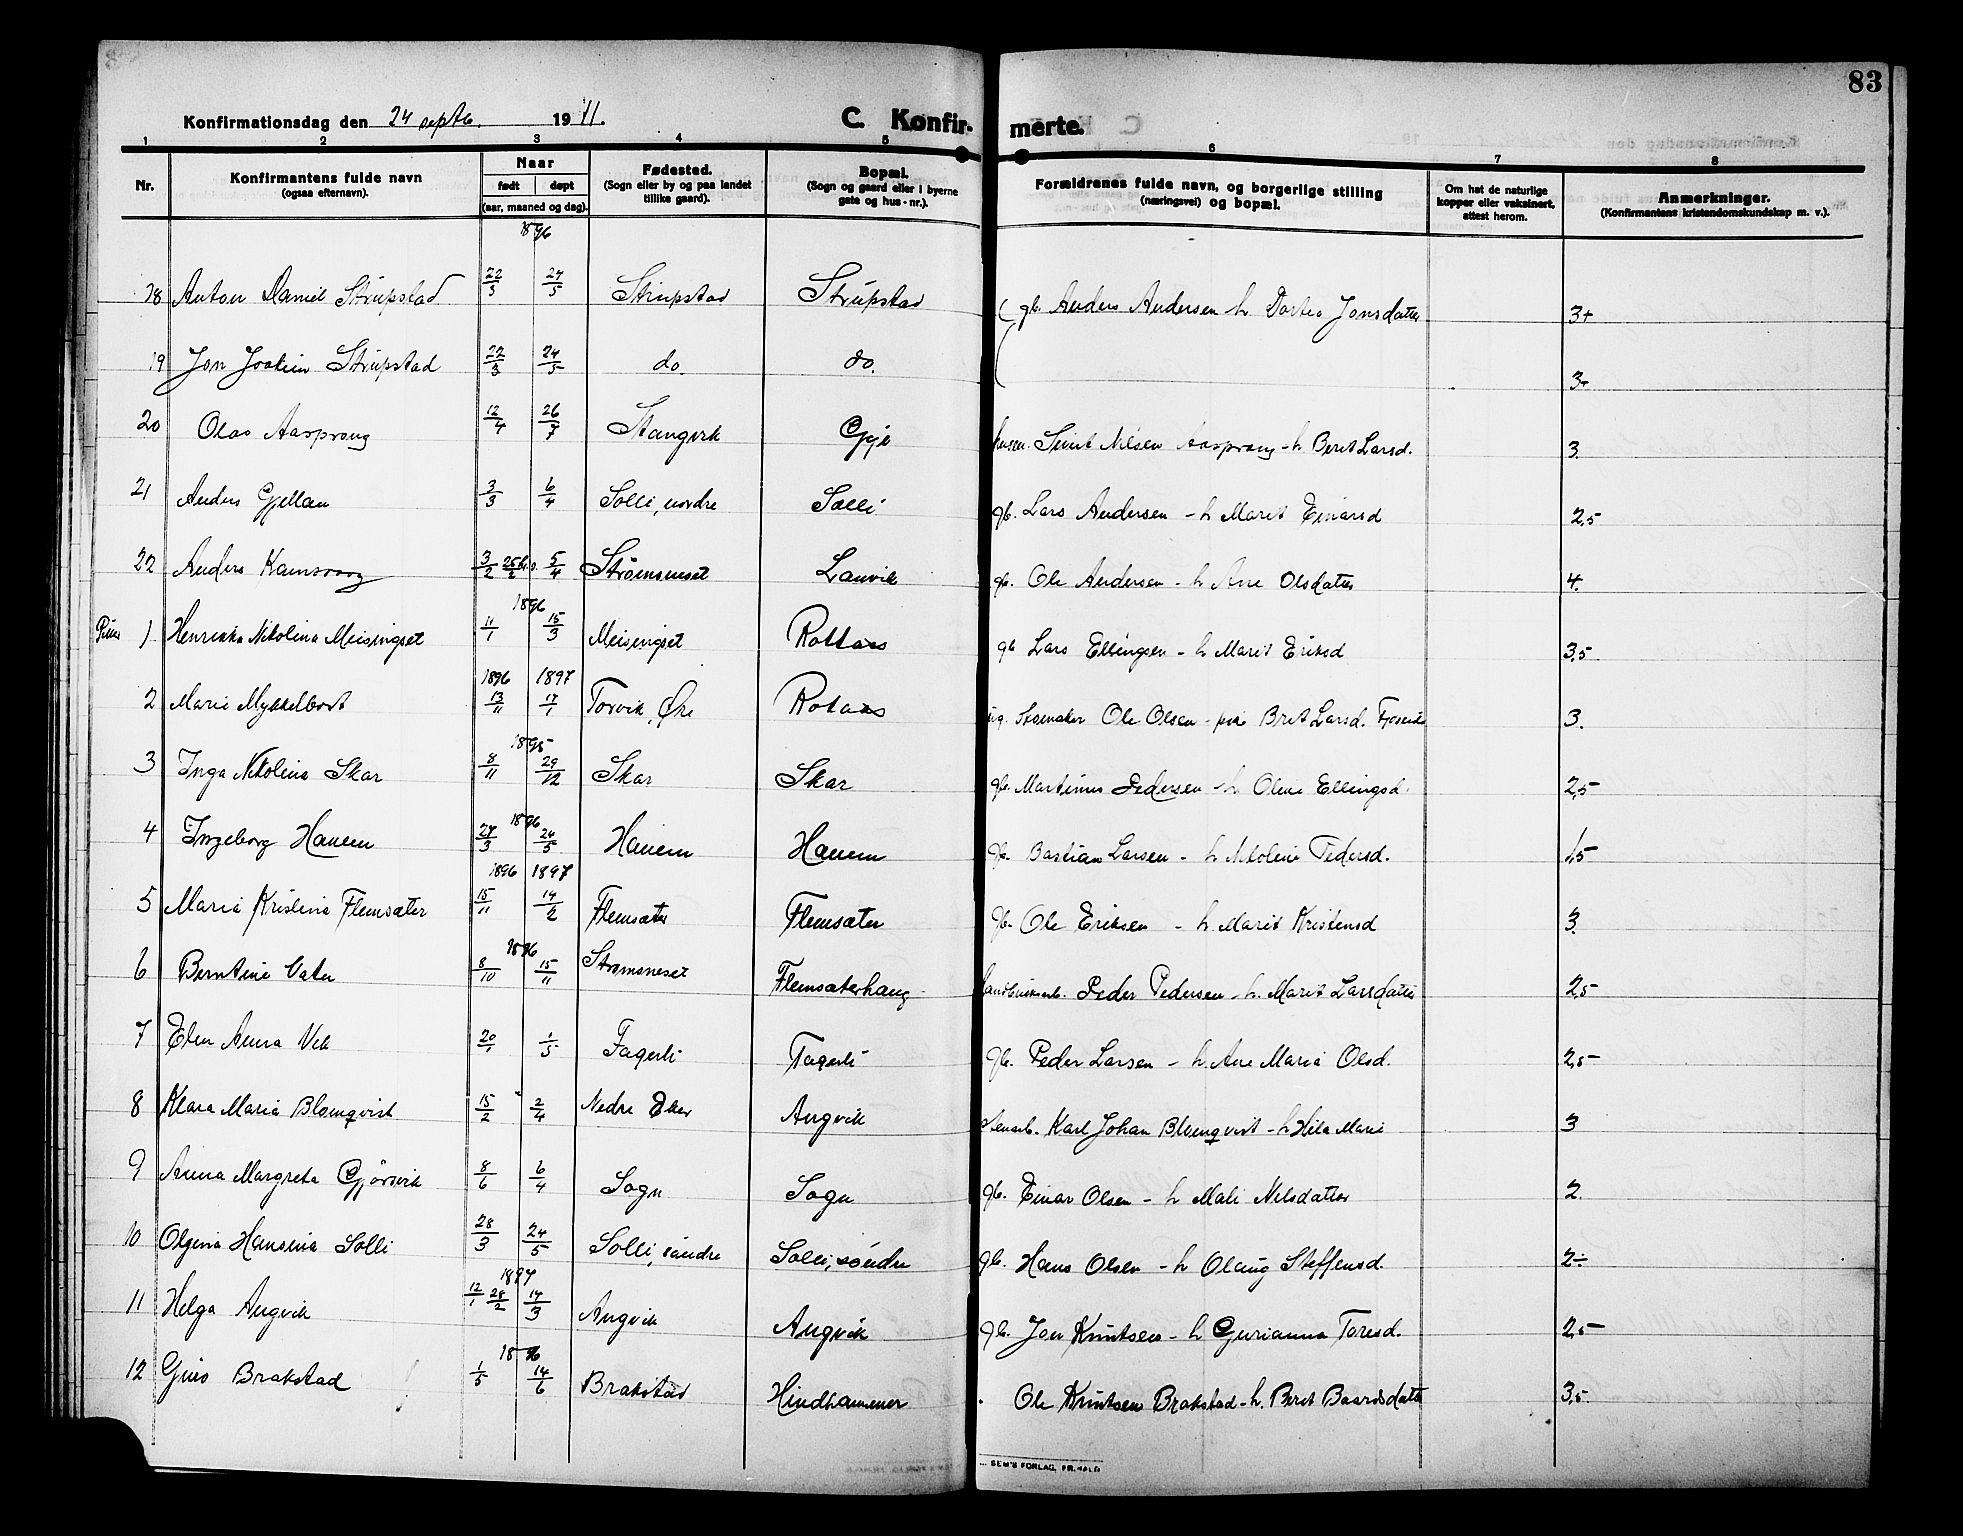 83
Konfirmationsdag den 24 septb. 1911.
C. Konfirmerte.
1 2 3 4 5 6 7 8
Nr.
Konfirmantens fulde navn
(ogsaa efternavn).
Naar
født døpt
(aar, maaned og dag).
Fødested.
(Sogn eller by og paa landet
tillike gaard).
Bopæl.
(Sogn og gaard eller i byerne
gate og hus-nr.).
Forældrenes fulde navn, og borgerlige stilling
(næringsvei) og bopæl.
Om hat de naturlige
kopper eller vaksinert,
attest herom.
Anmerkninger.
(Konfirmantens kristendomskundskap m. v.).
1896
18 Anton Daniel Strupstad 22/3 24/5 Strupstad Strupstad gb. Anders Andersen h Dortea Jonsdatter 3+
19 Jon Joakim Strupstad 22/3 24/5 do. do. 3+
20 Olas Aasprong 12/4 26/7 Stangvik Gyl Sivert Nilsen Aasprong - h Berit Larsd. 3.
21 Anders Gjellan 3/3 6/4 Solli, nordre Solli gb. Lars Andersen - h Marit Einarsd 2,5
22 Anders Kamsvaag 3/2 5/4 Strømsneset Lanvik gb. Ole Andersen - h Ane Olsdatter 4.
1896
Piker 1 Henrikka Nikolina Meisingset 11/1 15/3 Meisingset Rottaas gb Lars Ellingsen - h Marit Eriksd 3,5
1896 1897
2 Marie Mykkelbost 13/11 17/1 Torvik, Øre Rotaas Ole Olsen - Brit Larsd. 3.
1895
3 Inga Nikolina Skar 8/11 29/12 Skar Skar gb. Martinus Pedersen - h Oline Ellingsd. 2,5
1896
4 Ingeborg Hanem 27/3 24/5 Hanem Hanem gb. Bastian Larsen - h Nikoline Pedersd. 1,5
1896 1897
5 Maria Kristina Flemsæter 15/11 14/2 Flemsæter Flemsæter gb. Ole Eriksen - h Marit Kristensd 3.
1896
6 Berntine Vatn 8/10 15/11 Strømsneset Flemsæterhaug Peder Pedersen - h. Marit Larsdatter 2,5
7 Elen Anna Vik 20/1 1/5 Fagerli Fagerli gb. Peder Larsen - h Ane Maria Olsd. 2,5
8 Klara Maria Blomqvist 15/2 2/4 Nedre Eker Angvik Stenarb. Karl Johan Blomqvist - h Hilda Marie 3
9 Anna Margreta Gjørsvik 8/6 6/4 Sogn Sogn gb. Einar Olsen - h Mali Nilsdatter 2.
10 Olgena Hansena Solli 28/3 24/5 Solli, søndre Solli, søndre gb. Hans Olsen - h Olaug Steffensd. 2÷
1897
11 Helga Angvik 12/1 28/2 14/3 Angvik Angvik gb. Jon Knutsen - h Gurianna Toresd. 2,5
1896
12 Guro Brakstad 1/5 14/6 Brakstad Hindhammer Ole Knutsen Brakstad - h. Berit Baardsdatter 3,5
SEM'S FORLAG, FR.HALD